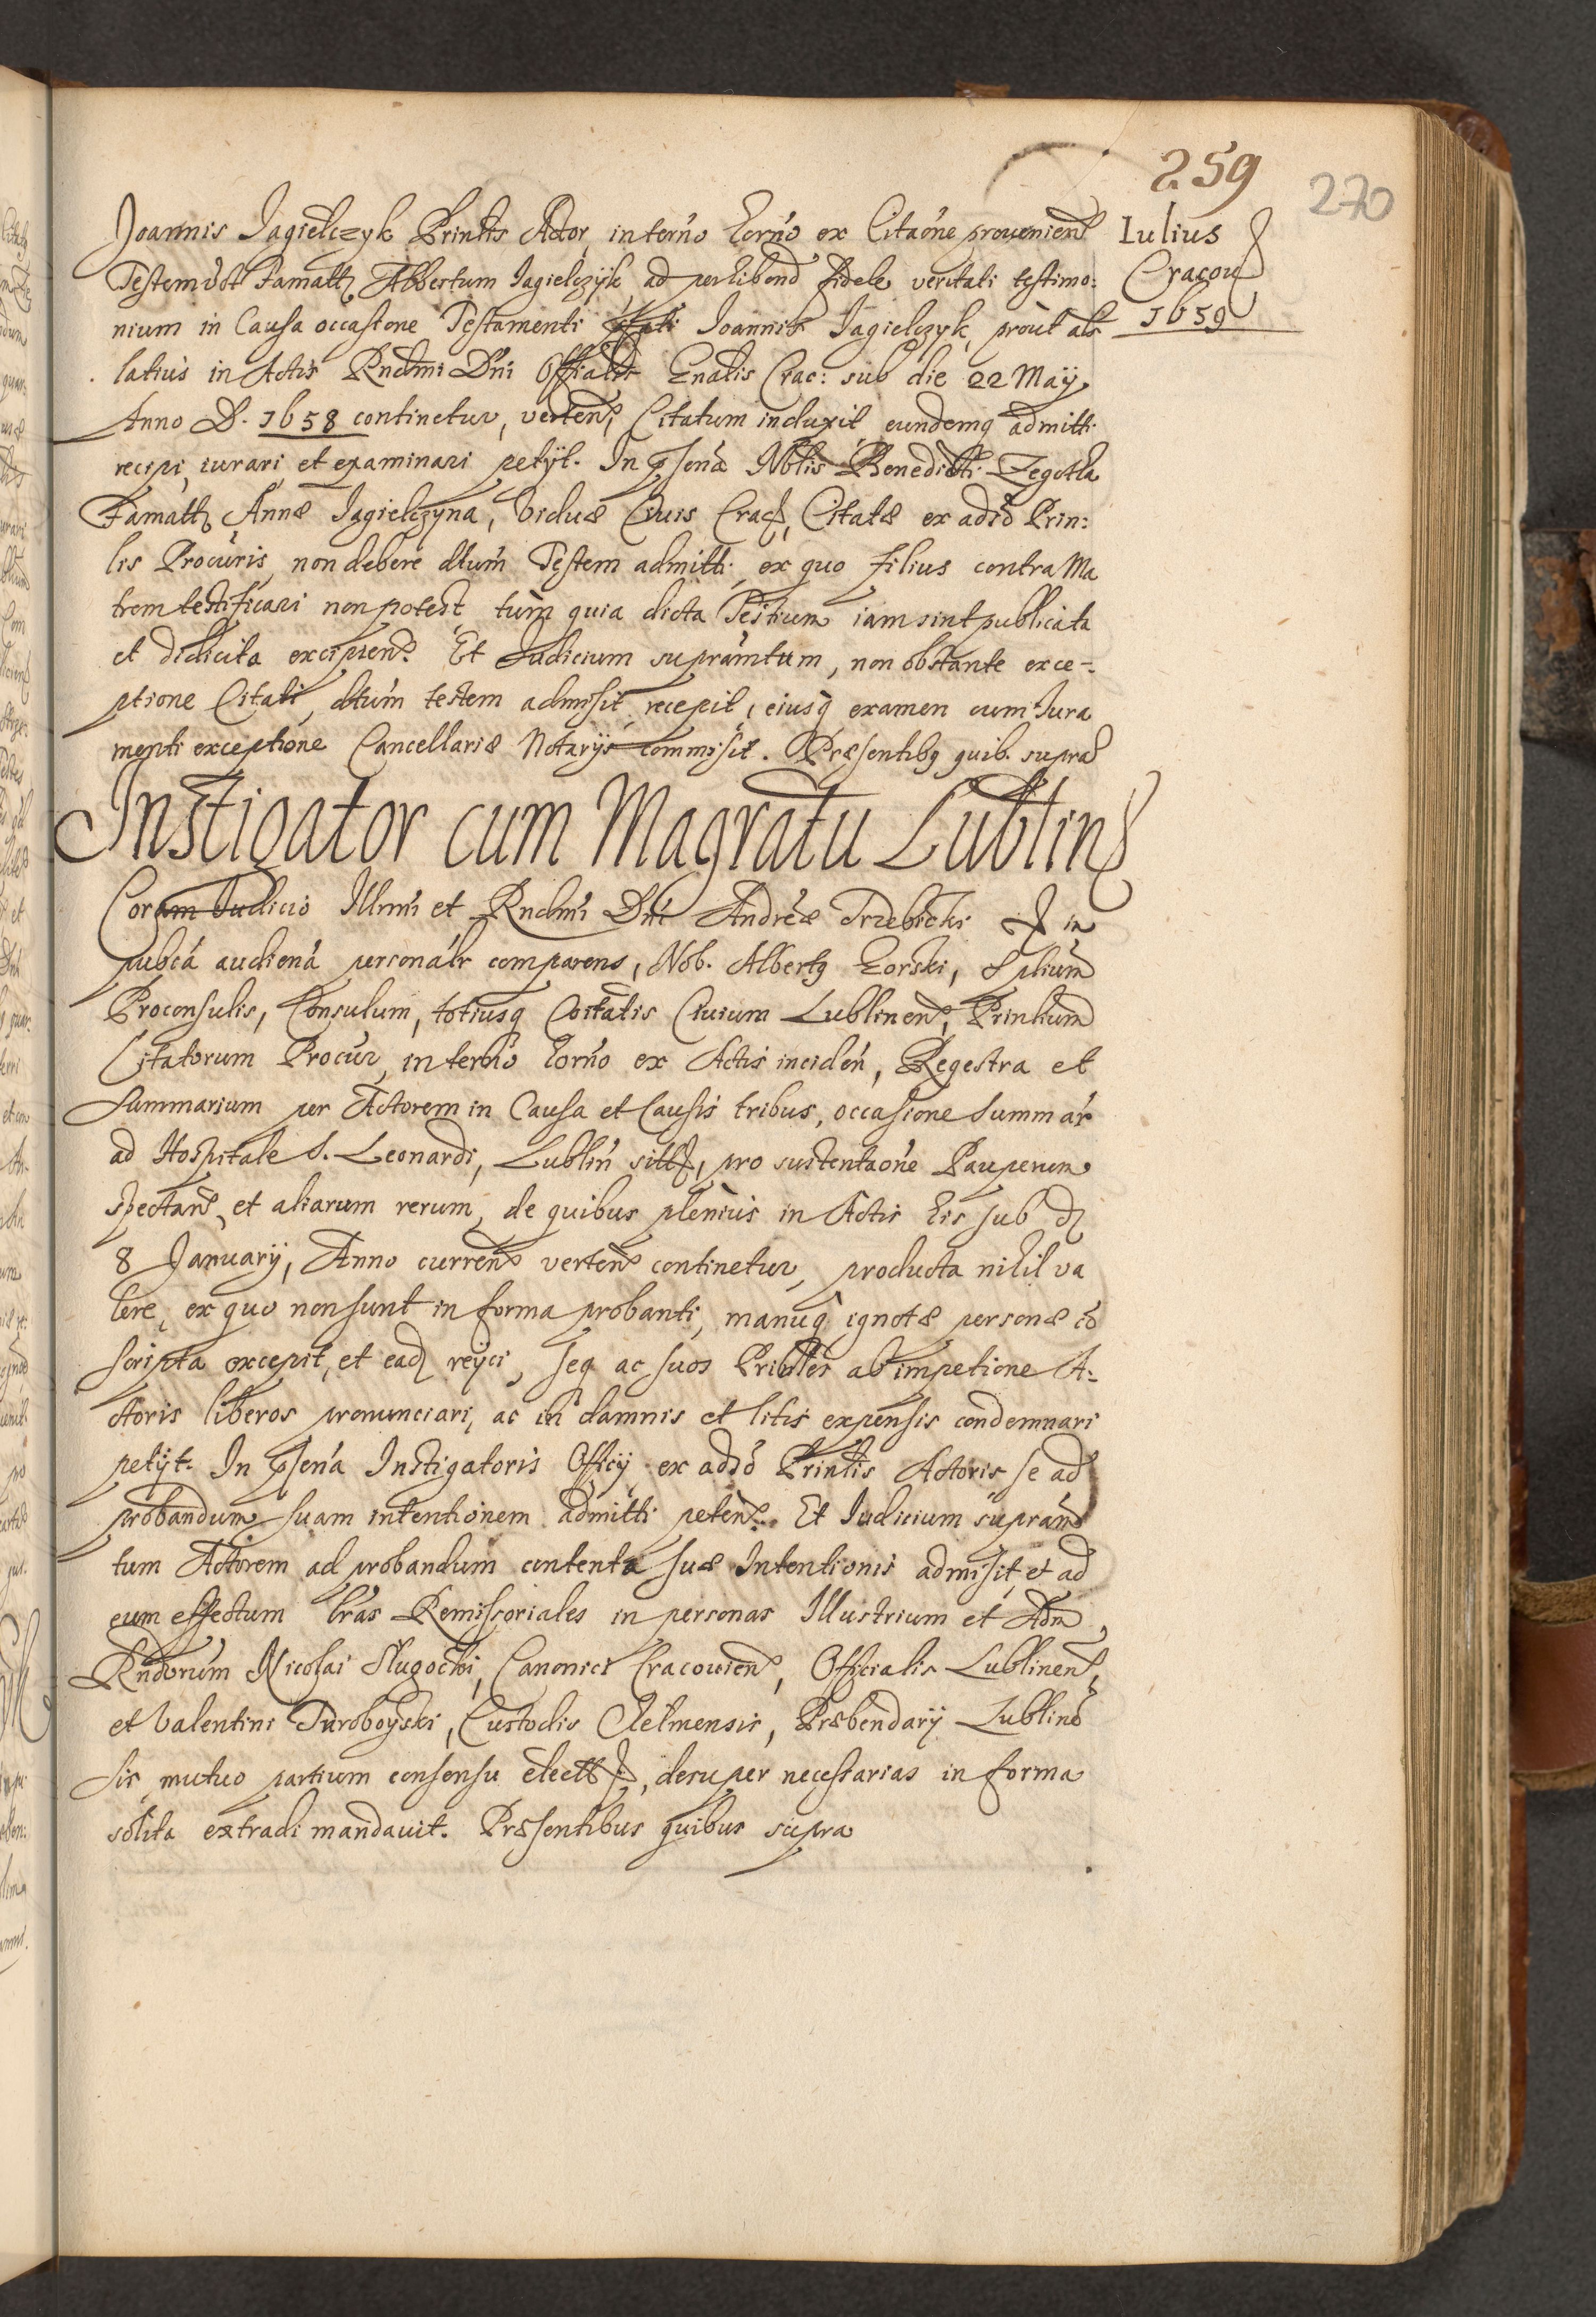 259
270
Iulius
Cracov
1659
Joannis Jagielczyk Prinlis Actor, in termo horno ex Citaone provenien
Testem vdt Famatt Albertum Jagielczyk ad perhibend fidele veritati testimo:
nium in Causa occasione Testamenti Joannis Jagielczyk, prout alr
latius in Actis Rndmi Dni Offialis Gnalis Crac: sub die 22 Maÿ
Anno D. 1658 continetur, verten, Citatum induxit, eundemq admitti
recipi, iurari et examinari petÿt. In psena Nblis Benedicti Zegotka
Famatt Annæ Jagielczyna, Viduæ Civis Crac, Citatæ ex adso Prin:
lis Procuris, non debere dtum Testem admitti, ex quo filius contra Ma
trem testificari non potest, tum quia dicta Testium iam sint publicata
et didicita excipien. Et Judicium supramtum, non obstante exce-
ptione Citati, dtum testem admisit, recepit, eiusq examen cum Iura
menti exceptione Cancellariæ Notarÿs commisit. Præsentibq quib. supra
Instigator cum Magratu Lublin
Coram Iudicio Illmi et Rndmi Dni Andreæ Trzebicki in
pubca audiena personalr comparens, Nob. Albertq Gorski, Splium
Proconsulis, Consulum, totiusq Coitatis Civium Lublinen, Prinlium
Citatorum Procur, in termo horno ex Actis inciden, Regestra et
Summarium per Actorem in Causa et Causis tribus, occasione Summar
ad Hospitale S. Leonardi, Lublin sitt, pro sustentaone Pauperum
spectan, et aliarum rerum, de quibus plenius in Actis his sub d
8 Januarÿ, Anno curren verten continetur, producta nihil va
lere, ex quo non sunt in forma probanti, manuq ignotæ personæ co
scripta excepit, et ead reÿci, seq ac suos Prinles ab impetione A-
ctoris liberos pronunciari, ac in damnis et litis expensis condemnari
petÿt. In psena Instigatoris Officÿ ex adso Prinlis Actoris se ad
probandum suam intentionem admitti peten. Et Iudicium supram
tum Actorem ad probandum contenta suæ Intentionis admisit, et ad
eum effectum lras Remissoriales in personas Illustrium et Adm
Rndorum Nicolai Slugocki, Canonici Cracovien, Officialis Lublinen,
et Valentini Turoboyski, Custodis Chelmensis, Præbendarÿ Lublinē
sis, mutuo partium consensu elect, desuper necessarias in forma
solita extradi mandavit. Præsentibus quibus supra